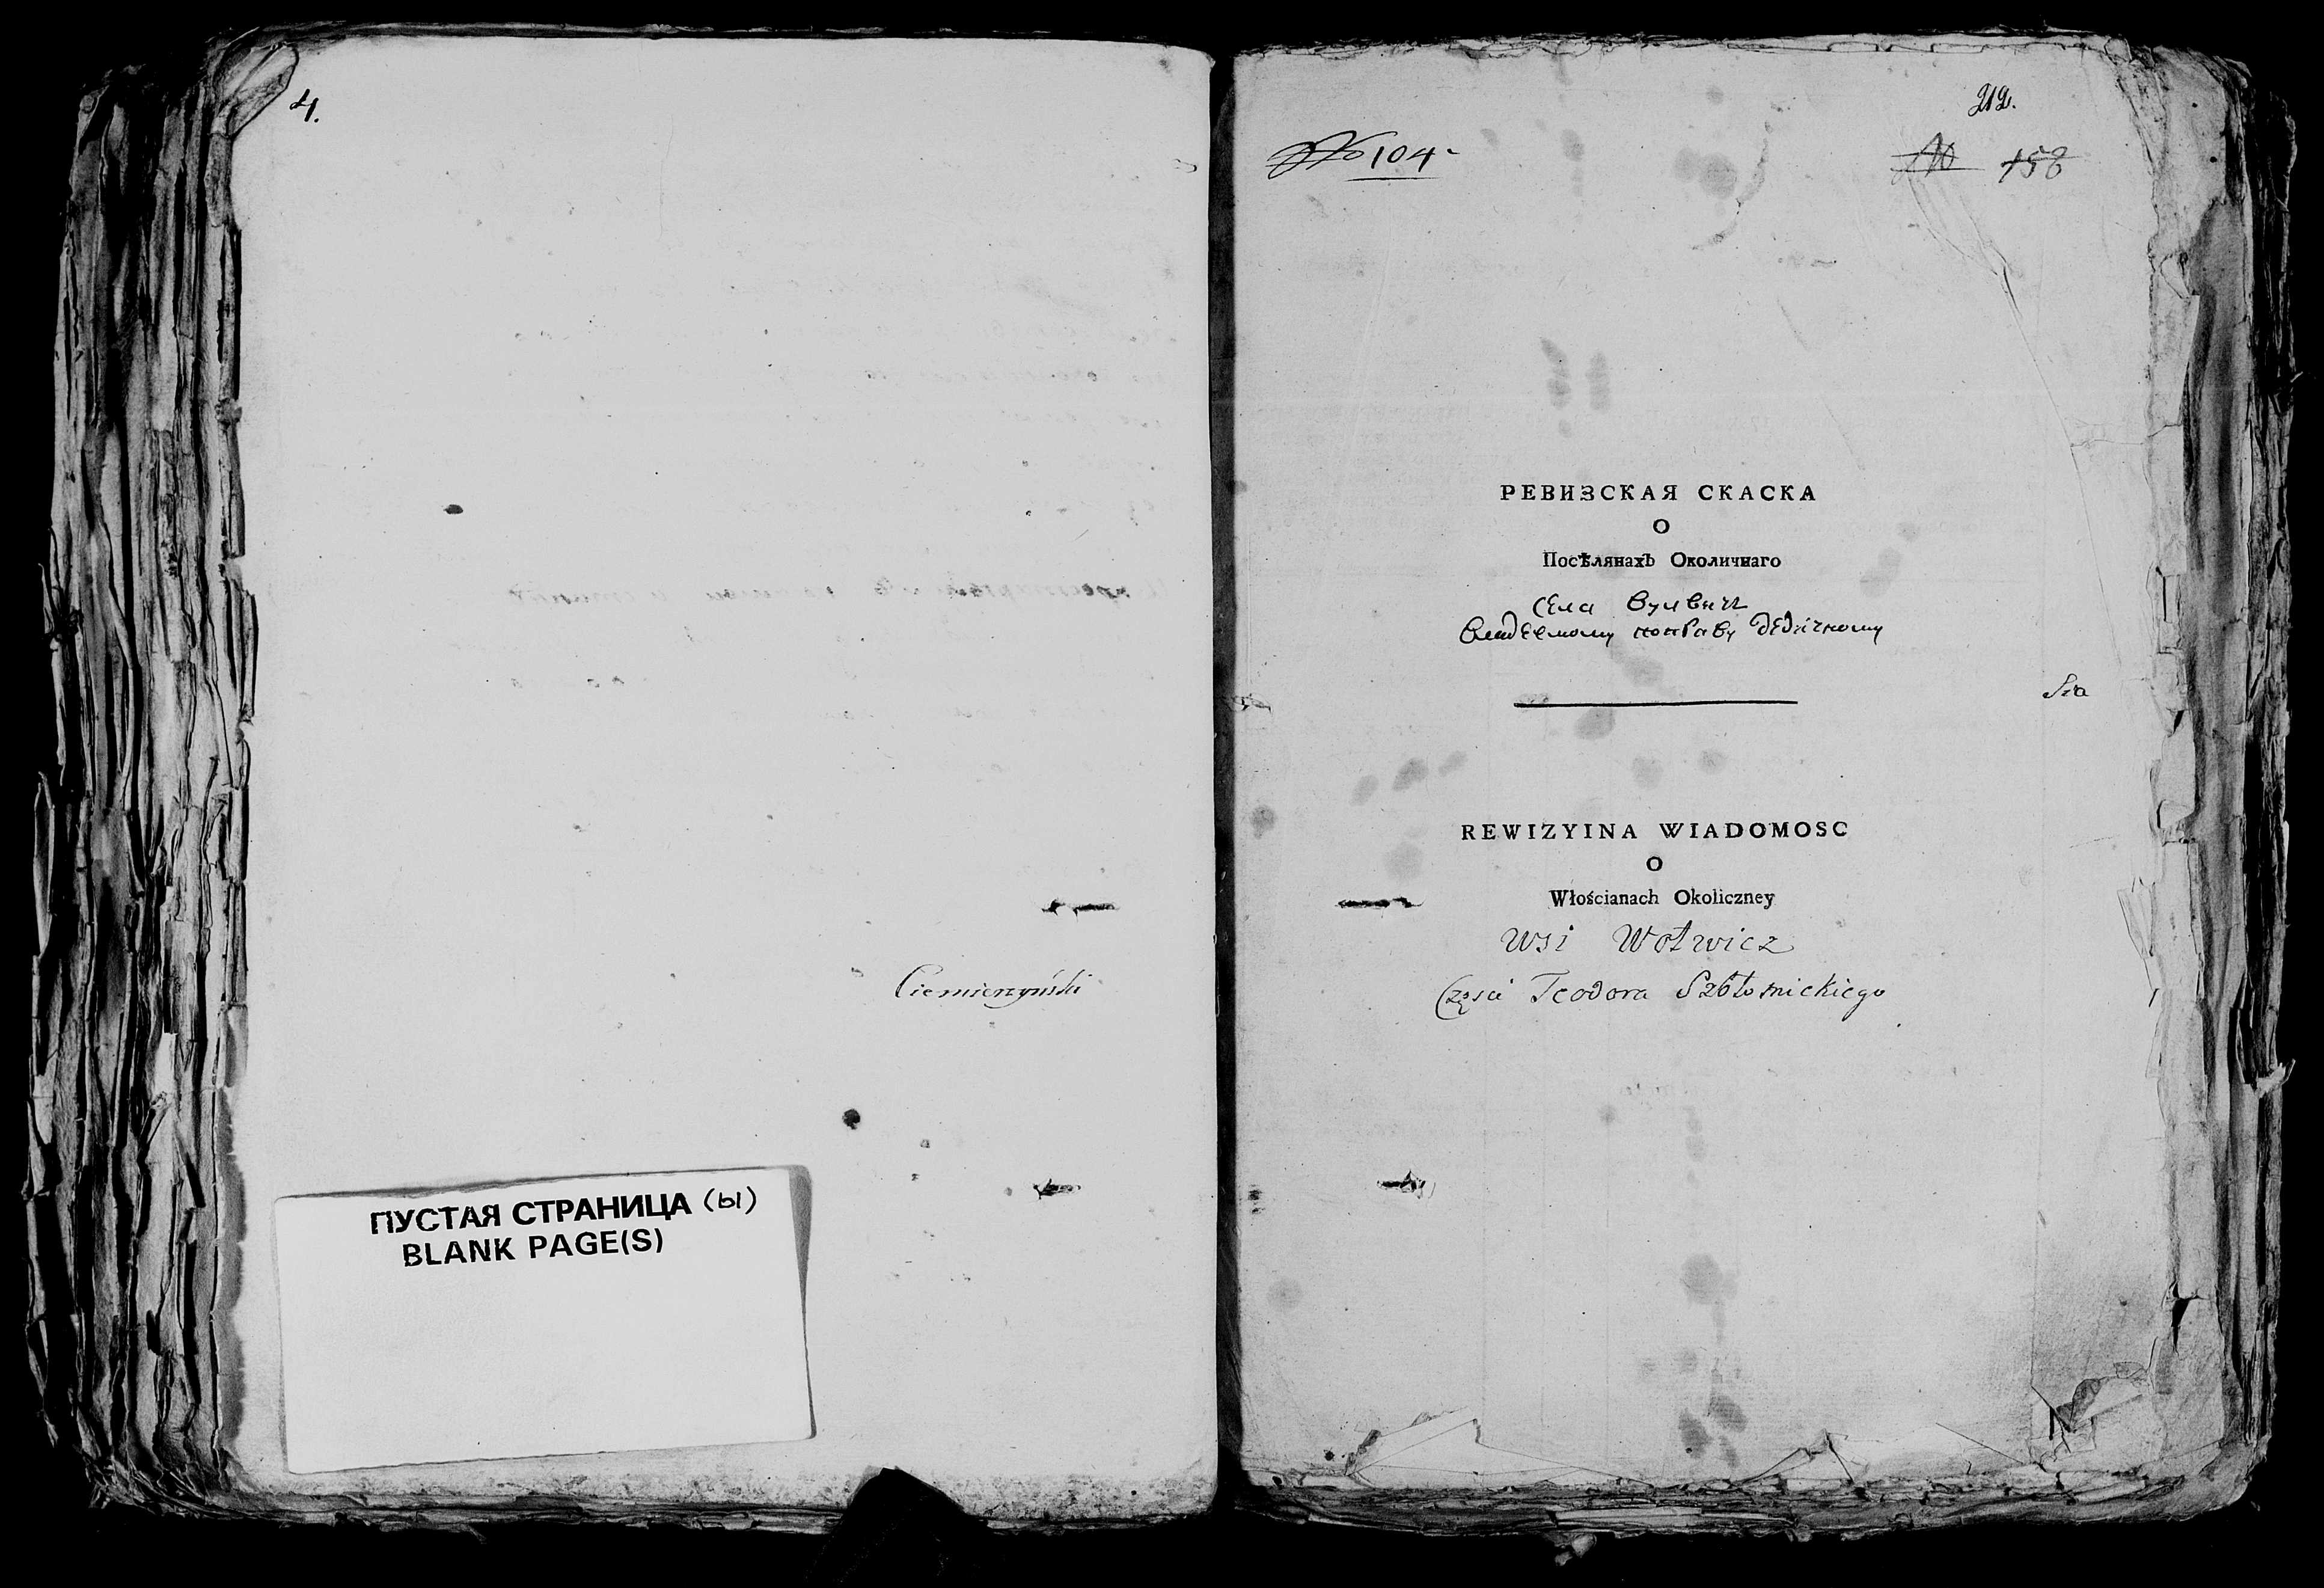 4.
Ciemierzyński
ПУСТАЯ СТРАНИЦА (ы)
BLANK PAGE(S)
212.
No 104
No 158
РЕВИЗСКАЯ СКАСКА
О
Посѣлянахъ Околичнаго
Села Вулвичъ
дѣдичному
REWIZYINA WIADOMOSC
O
Włościanach Okoliczney
Wsi Wołwicz
Części Teodora